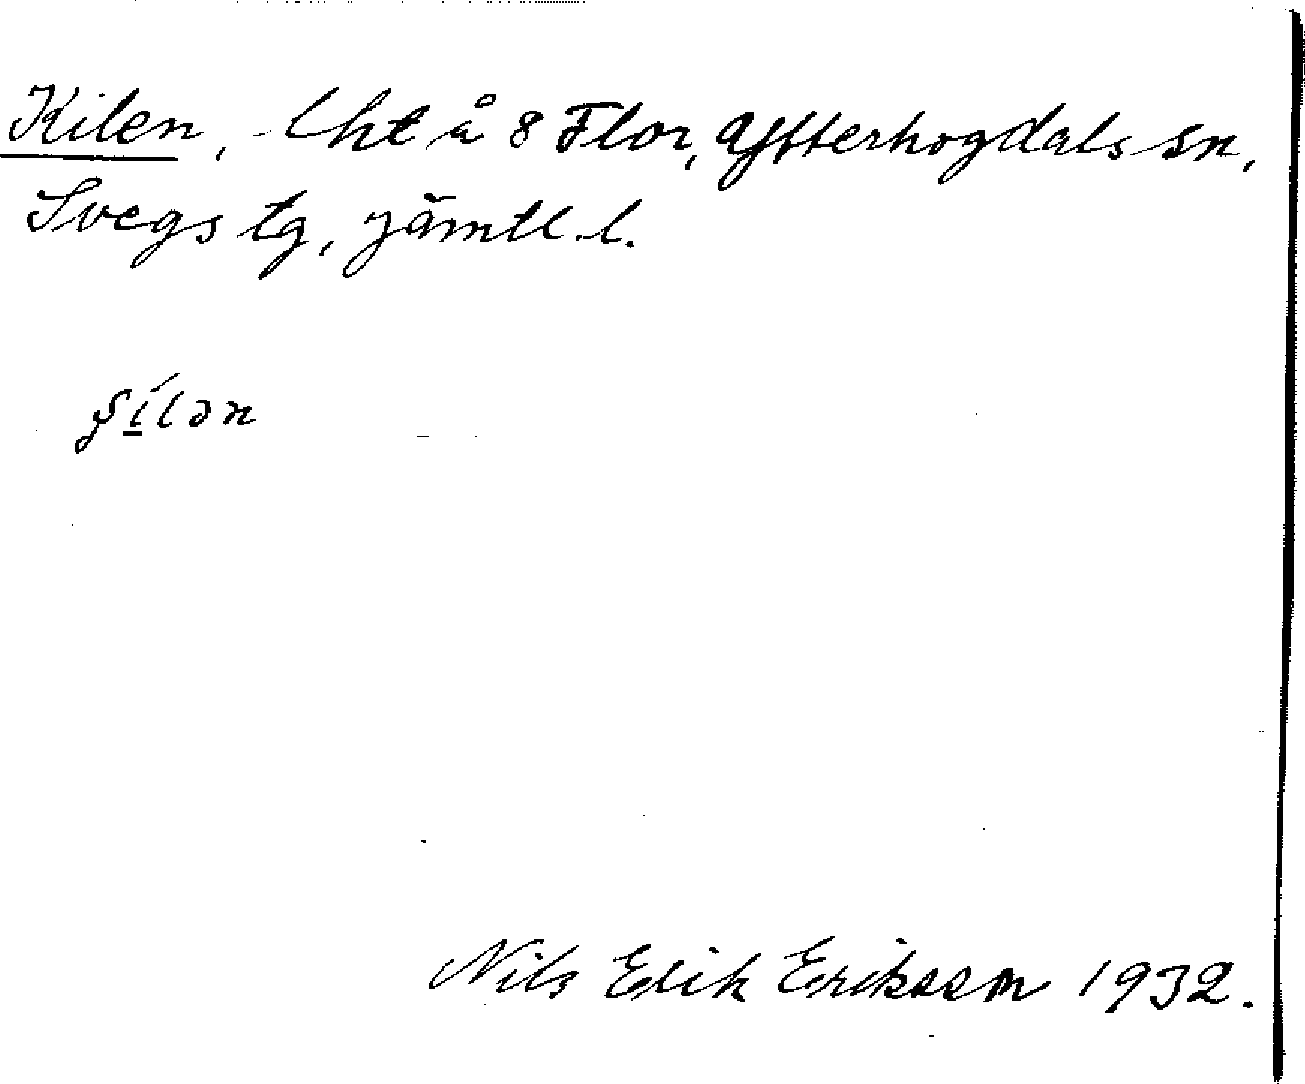 Kilen, lht å 8 Flor, Ytterhogdals sn,
Svegs tg, Jämtl. l.
ʂílən
Nils Erik Eriksson 1932.